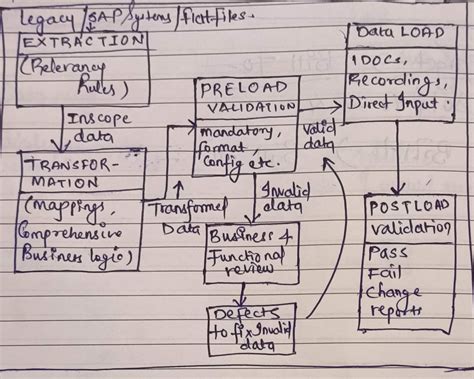 Legacy / SAP Systems / flat files.
EXTRACTION
(Relevancy
Rules)
Inscope
data
TRANSFOR-
MATION
(Mappings,
Comprehensive
Business logic)
Transformed
Data
PRELOAD
VALIDATION
mandatory,
format,
Config etc.
Valid
data
Invalid
data
Business &
Functional
review
Defects
to fix Invalid
data
Data LOAD
IDOCs,
Recordings,
Direct Input.
POSTLOAD
validation
Pass
Fail
Change
reports